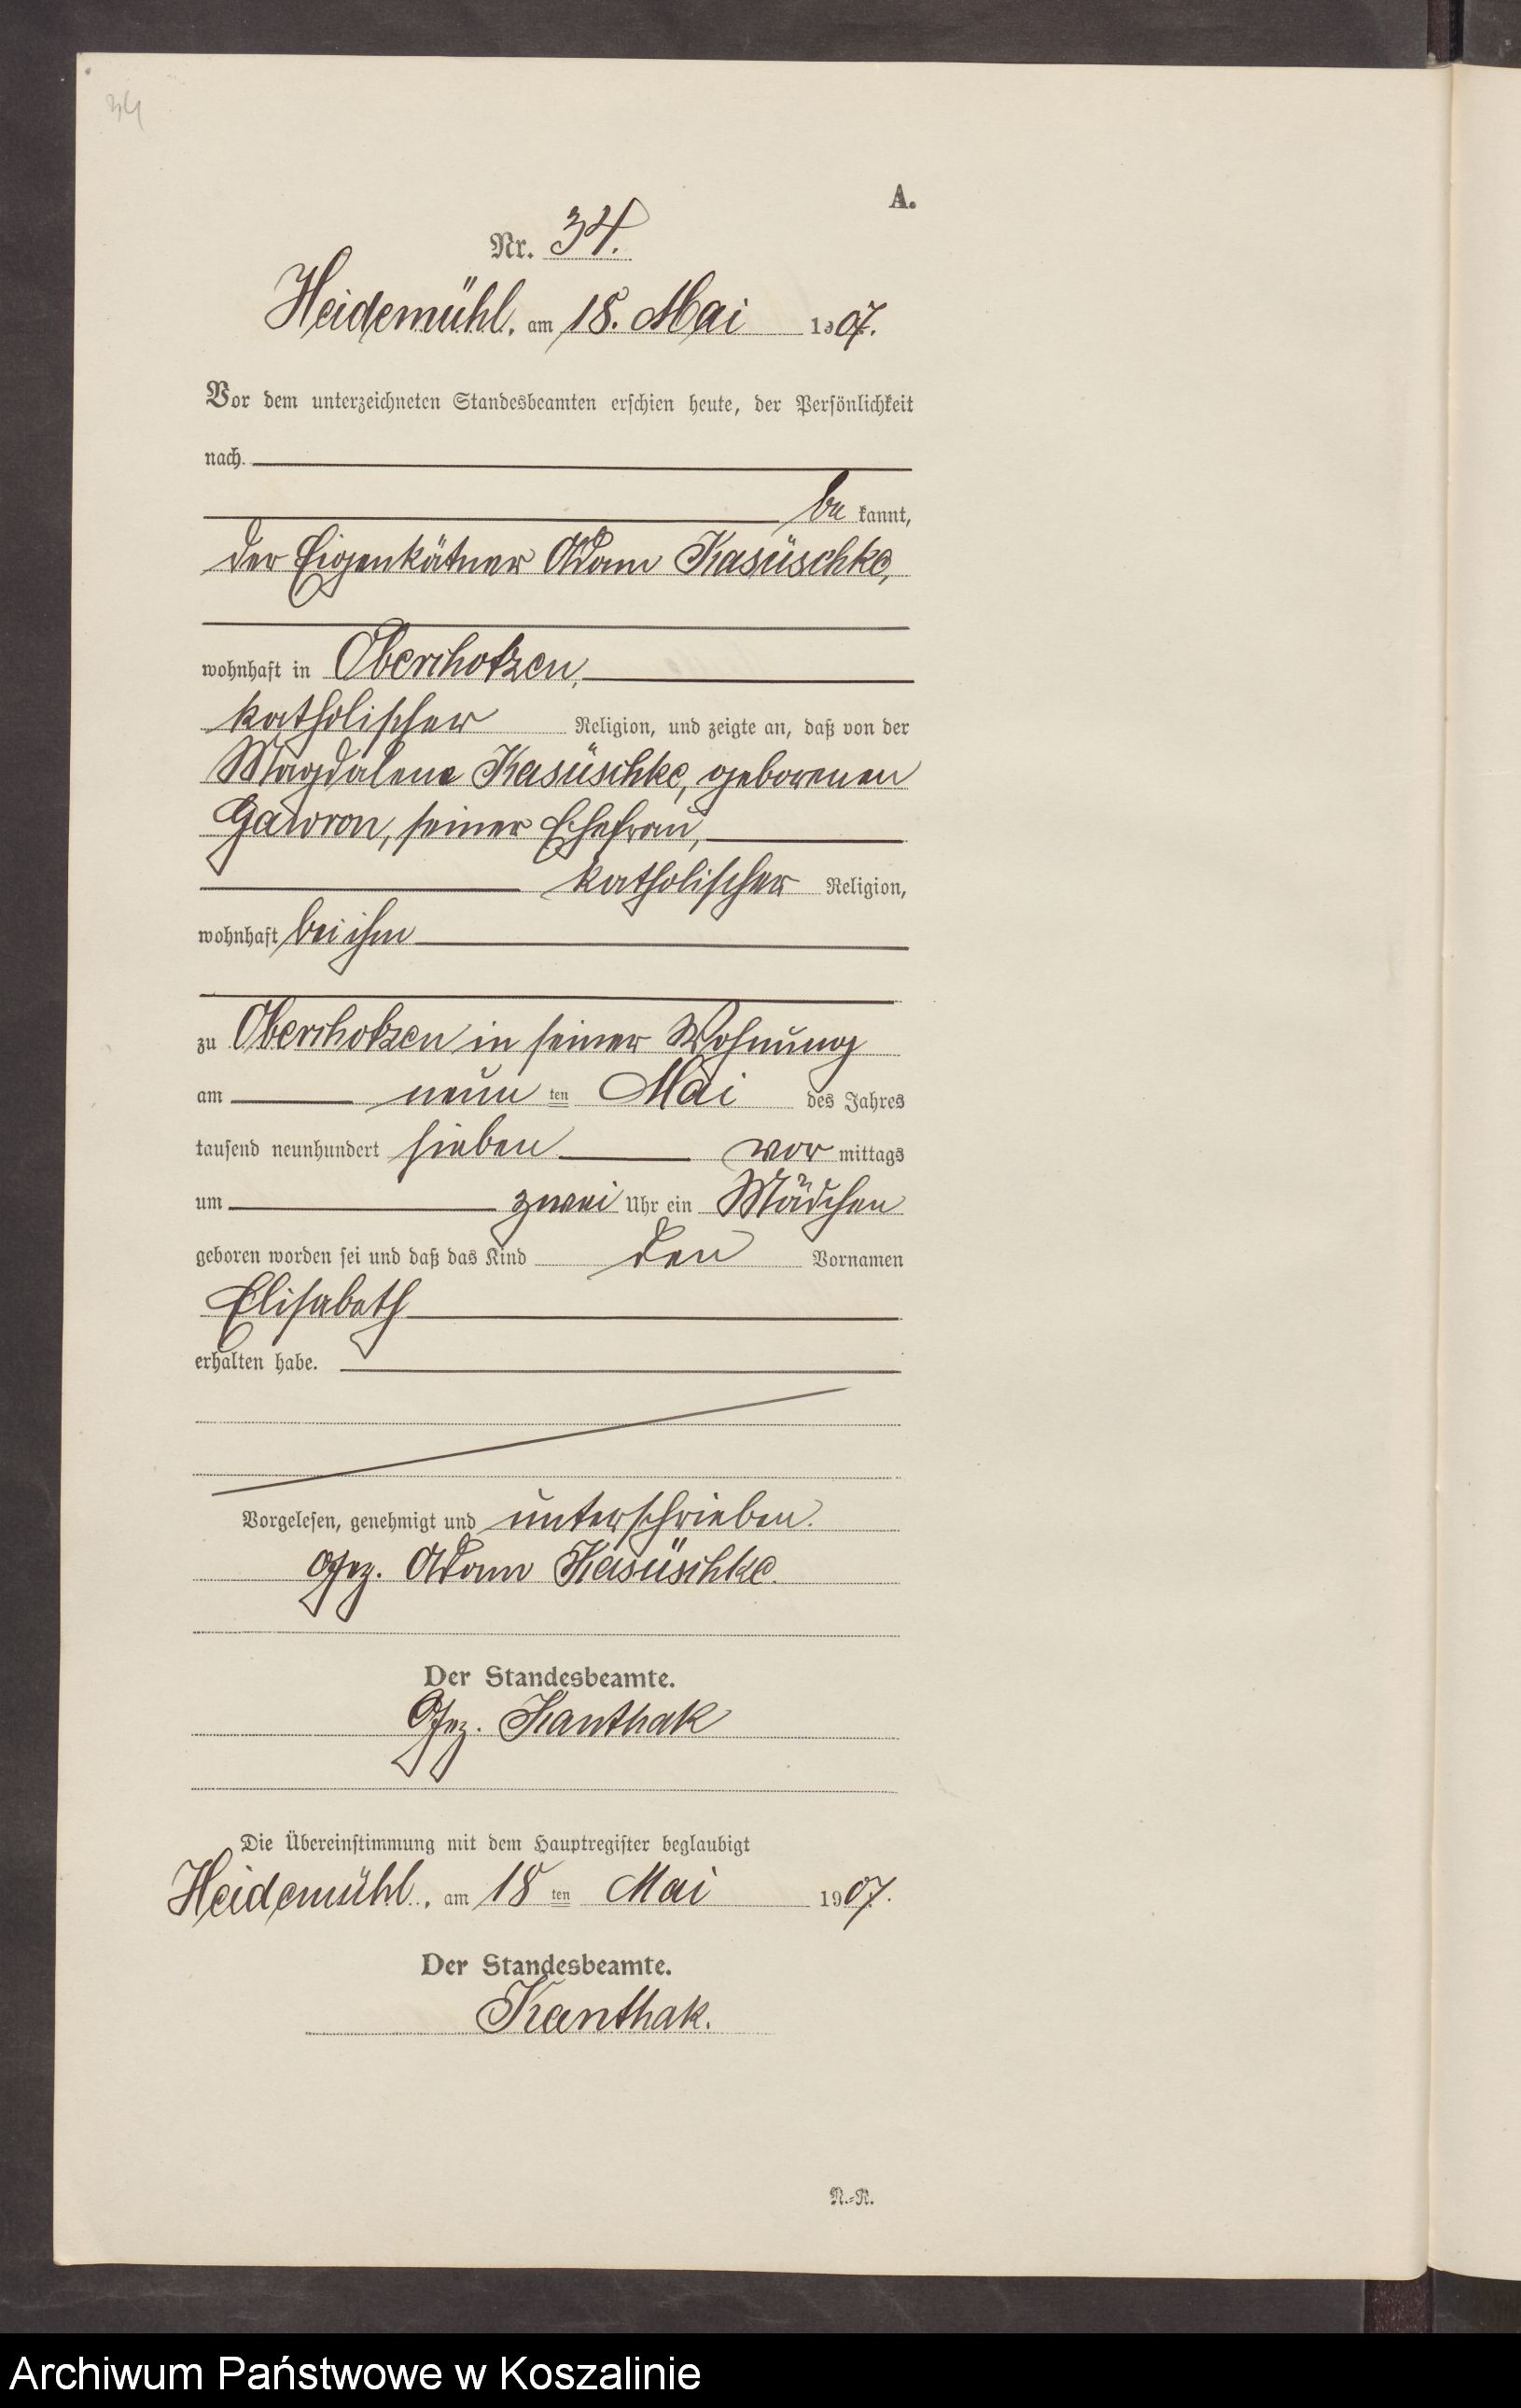 34
A.
Nr. 34.
Heidemühl, am 18. Mai 1907.
Vor dem unterzeichneten Standesbeamten erschien heute, der Persönlichkeit
nach
be kannt,
der Eigenkätner Adam Kasüschke,
wohnhaft in Oberchotzen,
katholischer Religion, und zeigte an, daß von der
Magdalena Kasüschke, geborenen
Gawron, seiner Ehefrau,
katholischer Religion,
wohnhaft bei ihm
zu Oberchotzen in seiner Wohnung
am neun ten Mai des Jahres
tausend neunhundert sieben vor mittags
um zwei Uhr ein Mädchen
geboren worden sei und daß das Kind den Vornamen
Elisabeth
erhalten habe.
Vorgelesen, genehmigt und unterschrieben.
Gez. Adam Kasüschke.
Der Standesbeamte.
Gez. Kanthak
Die Übereinstimmung mit dem Hauptregister beglaubigt
Heidemühl, am 18 ten Mai 1907.
Der Standesbeamte.
Kanthak.
N.-R.
Archiwum Państwowe w Koszalinie